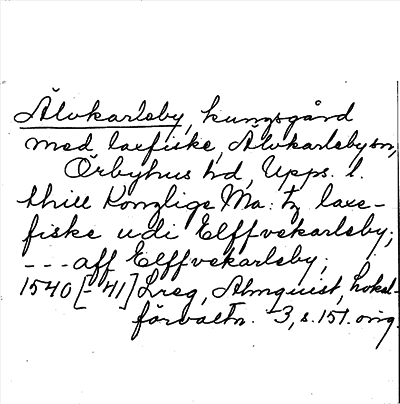 Älvkarleby, kungsgård
med laxfiske, Älvkarleby sn,
Örbyhus hd, Upps. l.
thill Konglige Ma: tz laxe-
fiske udi Elffvekarleby;
--- aff Elffvekarleby;
1540 [-41] Lreg, Almquist, Lokal-
förvaltn. 3, s. 151. orig.